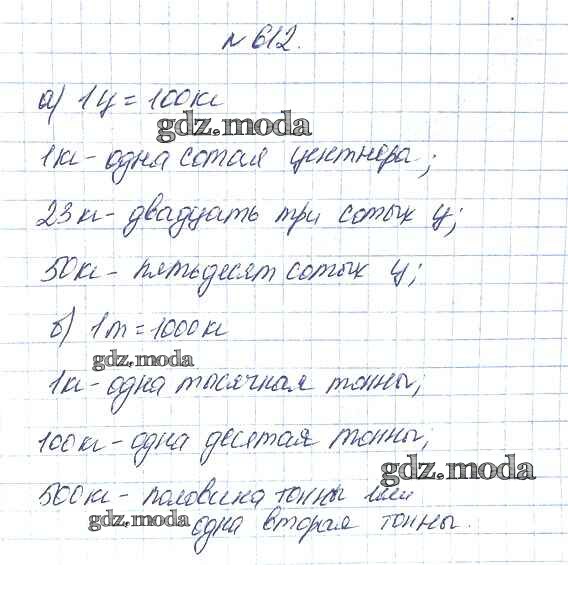 № 612.
а) 1 ц = 100 кг
gdz.moda
1 кг - одна сотая центнера;
23 кг - двадцать три сотых ц;
50 кг - пятьдесят сотых ц;
б) 1 т = 1000 кг
gdz.moda
1 кг - одна тысячная тонны;
100 кг - одна десятая тонны;
gdz.moda
500 кг - половина тонны или
gdz.moda
одна вторая тонны.